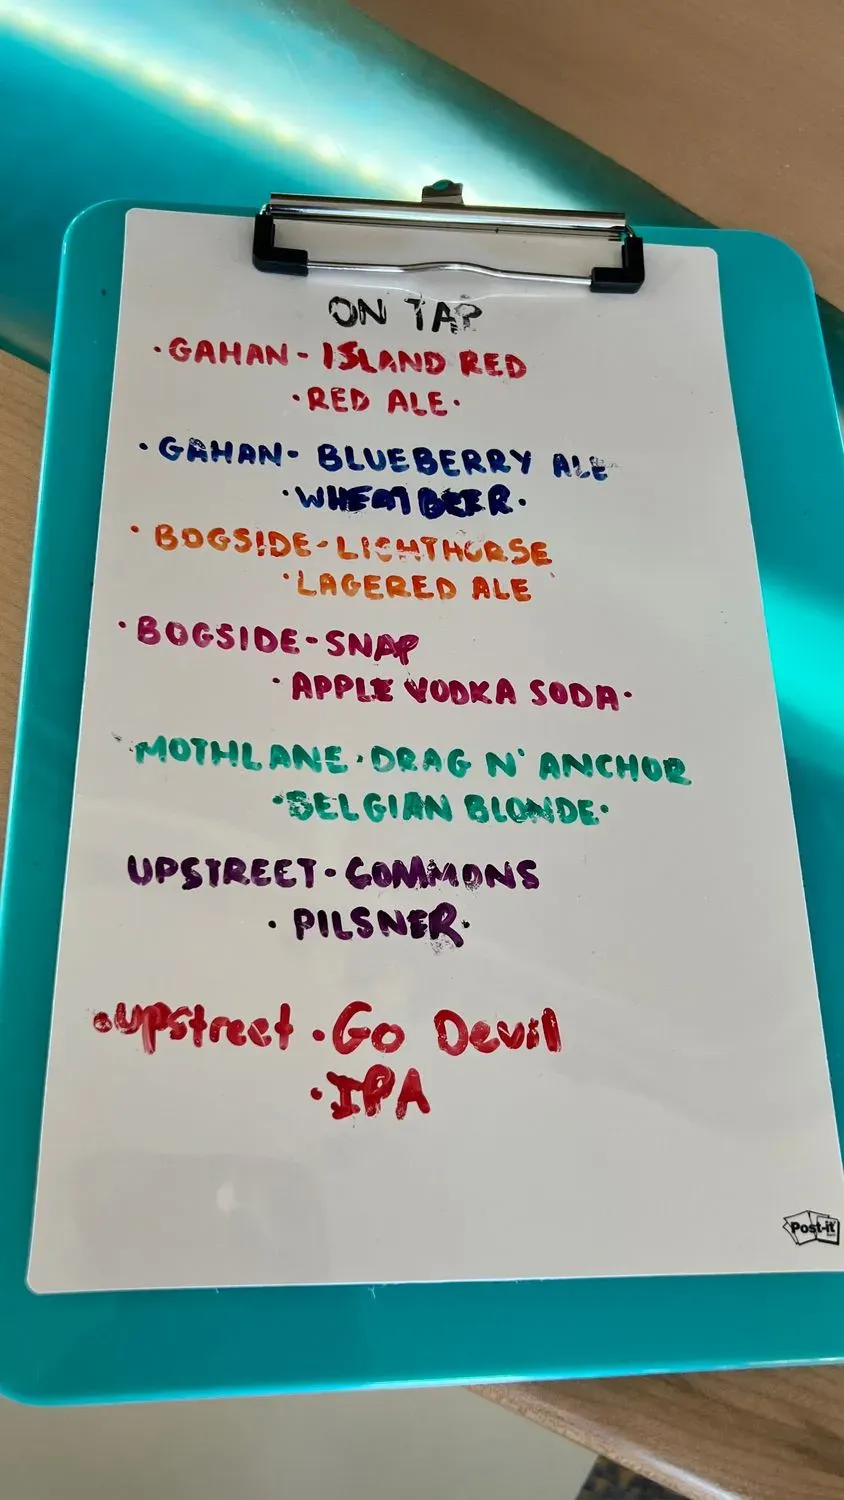 ON TAP
· GAHAN - ISLAND RED
· RED ALE ·
· GAHAN - BLUEBERRY ALE
· WHEAT BEER ·
· BOGSIDE - LIGHTHORSE
· LAGERED ALE
· BOGSIDE - SNAP
· APPLE VODKA SODA ·
· MOTHLANE · DRAG N' ANCHOR
· BELGIAN BLONDE ·
UPSTREET · COMMONS
· PILSNER ·
· Upstreet · Go Devil
· IPA
Post-it